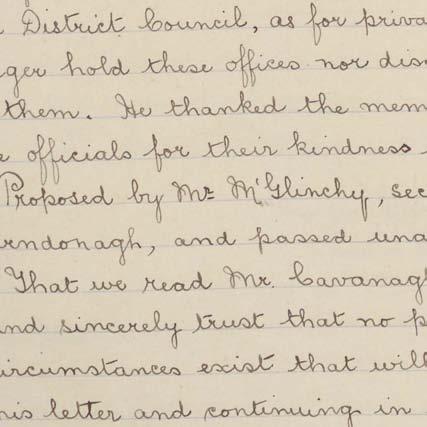 District Council, as for priva
ger hold these offices nor dis
them. He thanked the mem
e officials for their kindness
Proposed by Mr M'Glinchy, sec
rndonagh, and passed una
That we read Mr. Cavanagh
nd sincerely trust that no p
ircumstances exist that will
his letter and continuing in